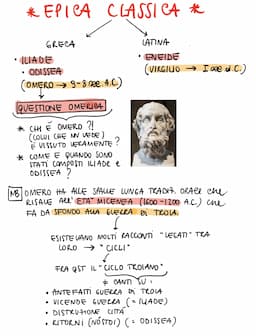 * EPICA CLASSICA *
GRECA
LATINA
• ILIADE
• ODISSEA
(OMERO → 9-8 sec. A.C.)
• ENEIDE
(VIRGILIO → I sec. d.C.)
QUESTIONE OMERICA
* CHI È OMERO ?!
(COLUI CHE NN VEDE)
È VISSUTO VERAMENTE ?
* COME E QUANDO SONO
STATI COMPOSTI ILIADE E
ODISSEA ?
NB OMERO HA ALLE SPALLE LUNGA TRADIZ. ORALE CHE
RISALE ALL' ETÀ MICENEA (1600-1200 A.C.) CHE
FA DA SFONDO ALLA GUERRA DI TROIA.
ESISTEVANO MOLTI RACCONTI "LEGATI" TRA
LORO → "CICLI"
FRA QST IL "CICLO TROIANO"
* CANTI SU:
• ANTEFATTI GUERRA DI TROIA
• VICENDE GUERRA (= ILIADE)
• DISTRUZIONE CITTÀ
• RITORNI (NÓSTOI) (= ODISSEA)